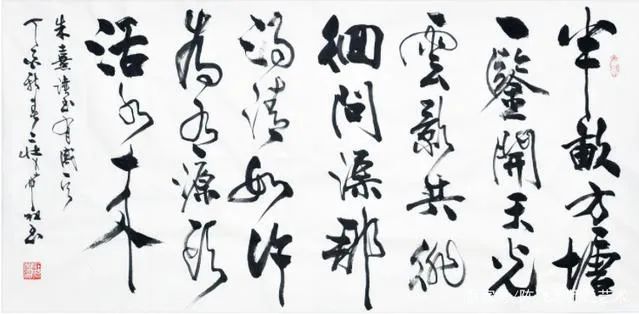 半畝方塘
一鑒開天光
雲影共徘
徊問渠那
得清如許
為有源頭
活水來
朱熹讀書有感
丁酉新春 書